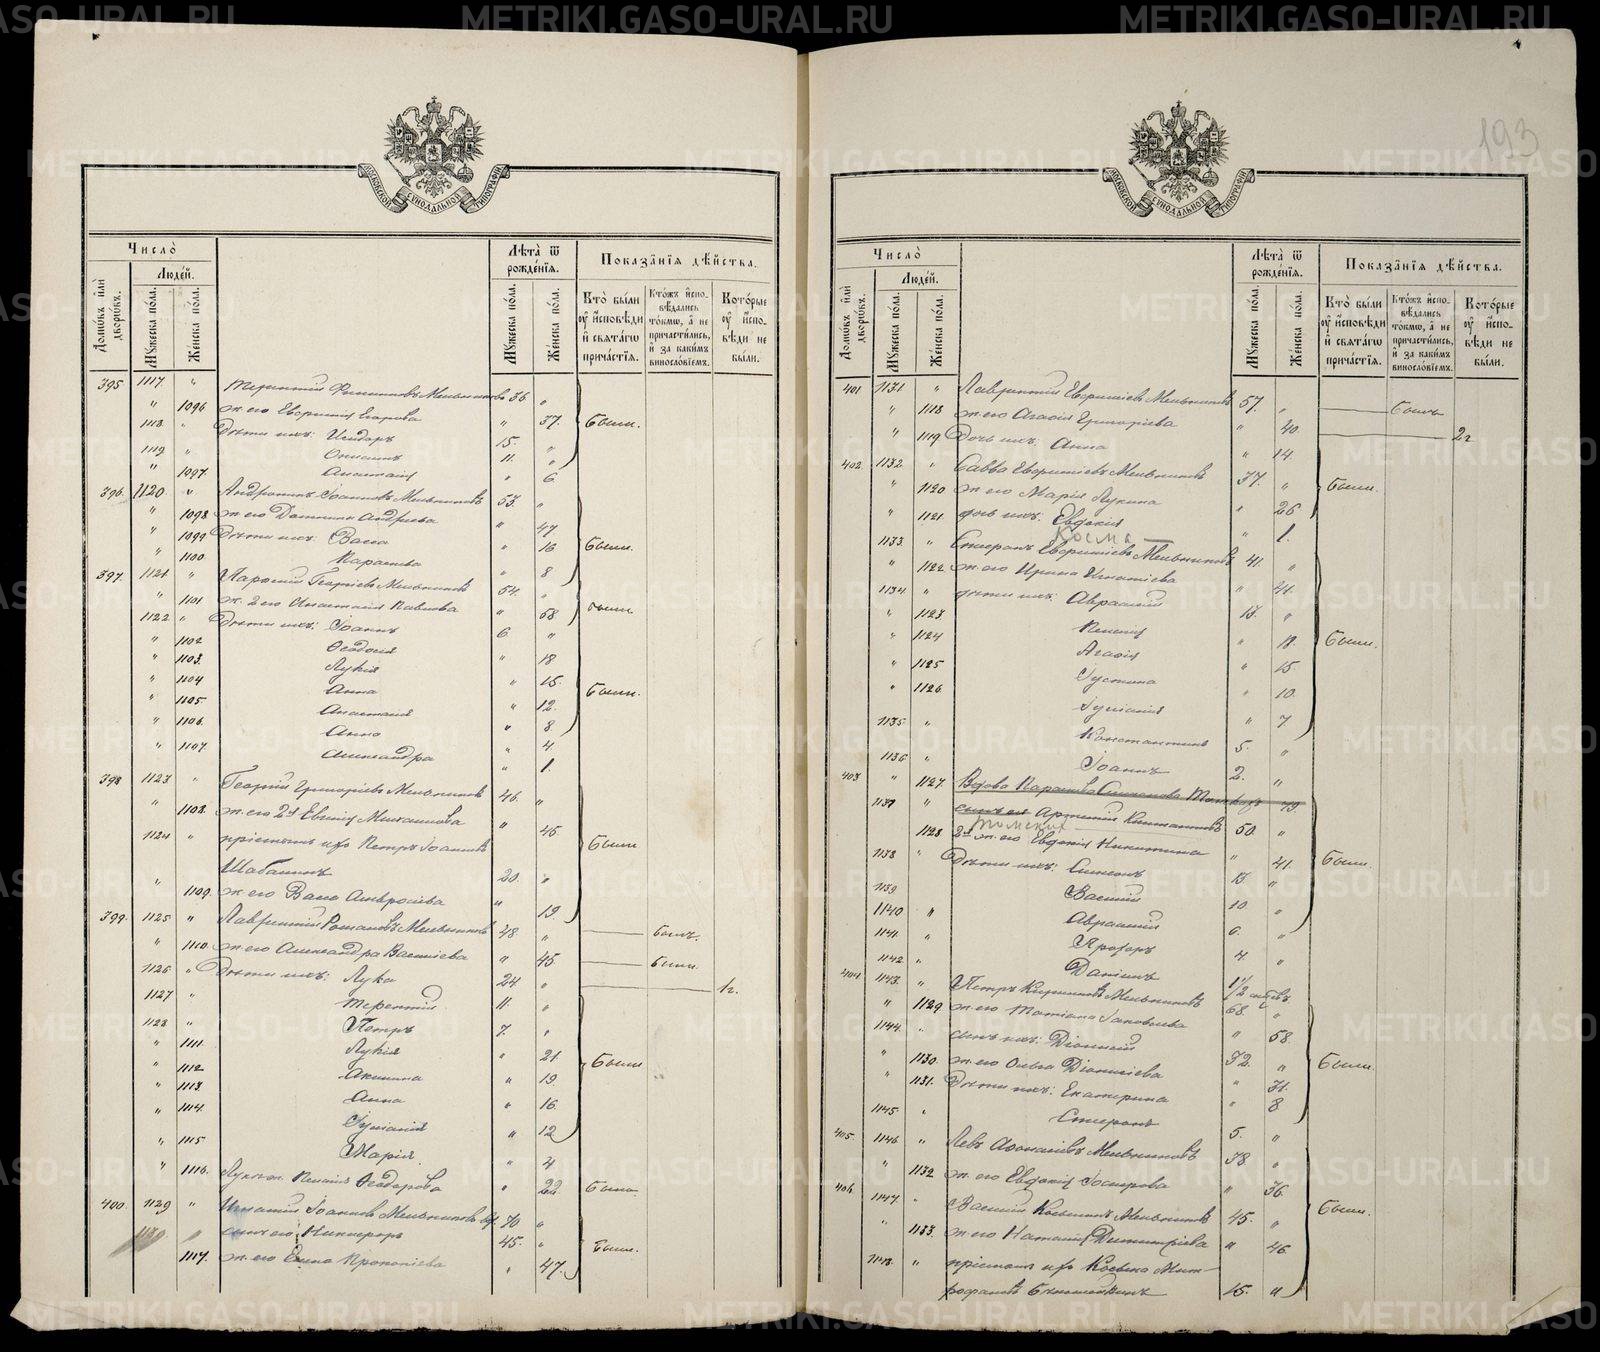 METRIKI.GASO-URAL.RU
193
МОСКОВСКОЙ СѴНОДАЛЬНОЙ ТИПОГРАФІИ
Число̀
Людей.
Домѡвъ и҆лѝ дворѡвъ.
Мꙋжеска по́ла.
Же́нска по́ла.
Лѣ́та ѿ рожде́нїѧ.
Мꙋжеска по́ла.
Же́нска по́ла.
Показа́нїѧ дѣ́йства.
Кто̀ бы́ли ᲂу҆ и҆сповѣ́ди и҆ свѧта́гѡ прича́стїѧ.
Кто́жъ и҆спо-вѣ́дались то́кмѡ, а҆ не причасти́лись, и҆ за каки́мъ винослѡ́вїемъ.
Кото́рые ᲂу҆ и҆спо-вѣ́ди не бы́ли.
395 1117 " Терентій Филиповъ Мельниковъ 36. "
" 1096 ж. его Евфимія Егорова " 37. Были.
1118. " Дѣти ихъ: Исидоръ 15. "
1119 " Онисимъ 11. "
" 1097. Анастасія " 6
396. 1120 " Андроникъ Іоанновъ Мельниковъ 53. "
" 1098 ж. его Домника Андреева " 47
" 1099 Дѣти ихъ: Васса " 16 Были.
" 1100. Параскева " 8
397. 1121. " Парфеній Георгіевъ Мельниковъ 54. "
" 1101 ж. 2 его Анастасія Павлова " 58 были
1122 " Дѣти ихъ: Іоаннъ 6 "
" 1102 Ѳеодосія " 18
" 1103. Лукія " 15.
" 1104 Анна " 12. Были.
" 1105 Анастасія " 8
" 1106. Анна " 4.
" 1107. Александра " 1.
398 1123 " Георгій Григоріевъ Мельниковъ 46. "
" 1108. ж. его 2я Евгенія Михаилова " 45
1124 " пріемышъ ихъ Петръ Іоанновъ Были
Шабалинъ 20. "
" 1109. ж. его Васса Амвросіева " 19
399. 1125 " Лаврентій Романовъ Мельниковъ 48 " былъ.
" 1110. ж. его Александра Васильева " 45. были.
1126 " Дѣти ихъ: Лука 24 " 1г.
1127 " Терентій 11. "
1128 " Петръ 7. "
" 1111. Лукія " 21. Были
" 1112 Акилина " 19.
" 1113. Анна " 16
" 1114. Іуліанія " 12
" 1115 Марія. " 4
" 1116. Ксенія Ѳеодорова " 22. Была.
400. 1129 " Игнатій Іоанновъ Мельниковъ 70 "
1130 " сынъ его Никифоръ 45. " Были.
" 1117. ж. его Елена Прокопіева " 47.
Число̀
Людей.
Домѡвъ и҆лѝ дворѡвъ.
Мꙋжеска по́ла.
Же́нска по́ла.
Лѣ́та ѿ рожде́нїѧ.
Мꙋжеска по́ла.
Же́нска по́ла.
Показа́нїѧ дѣ́йства.
Кто̀ бы́ли ᲂу҆ и҆сповѣ́ди и҆ свѧта́гѡ прича́стїѧ.
Кто́жъ и҆спо-вѣ́дались то́кмѡ, а҆ не причасти́лись, и҆ за каки́мъ винослѡ́вїемъ.
Кото́рые ᲂу҆ и҆спо-вѣ́ди не бы́ли.
401 1131 " Лаврентій Евфиміевъ Мельниковъ 57. " былъ
" 1118 ж. его Агафія Григоріева " 40. 2г
" 1119 Дочь ихъ: Анна " 14.
402. 1132. " Савва Евфиміевъ Мельниковъ 37. " Были.
" 1120 ж. его Марія Лукина " 26
" 1121. дочь ихъ: Евдокія " 1.
Косма —
1133 " Стефанъ Евфиміевъ Мельниковъ 41. "
" 1122 ж. его Ирина Игнатіева " 41.
1134. " дѣти ихъ: Авраамій 13. "
" 1123 Ксенія " 18. Были.
" 1124 Агафія " 15
" 1125 Іустина " 10.
" 1126. Іуліанія " 7
1135 " Константинъ 5. "
1136 " Іоаннъ 2. "
403 " 1127. Вдова Параскева Симеонова 79.
1137 " сынъ ея Артемій 50. "
Томскій
" 1128 2я ж. его Евдокія Никитина " 41.
1138 " Дѣти ихъ: Симеонъ 13. " Были.
1139 Василій 10 "
1140 " Авраамій 6. "
1141. " Прохоръ 4 "
1142 " Даніилъ 1/2
404 1143. " Петръ Кирилловъ Мельниковъ 68. "
" 1129 ж. его Татіана Іаковлева " 58.
1144. " сынъ ихъ: Діонисій 32. "
" 1130 ж. его Ольга Діонисіева " 31. Были.
" 1131. Дѣти ихъ: Екатерина " 8
1145. " Стефанъ 5. "
405. 1146 " Левъ Аѳанасіевъ Мельниковъ 38 "
" 1132 ж. его Евдокія Іосифова " 36
406. 1147. " Василій Косьминъ Мельниковъ 45. " Были.
" 1133. ж. его Наталія Димитріева " 46
1148. " пріемышъ ихъ Косьма Мит-
рофановъ 15. "